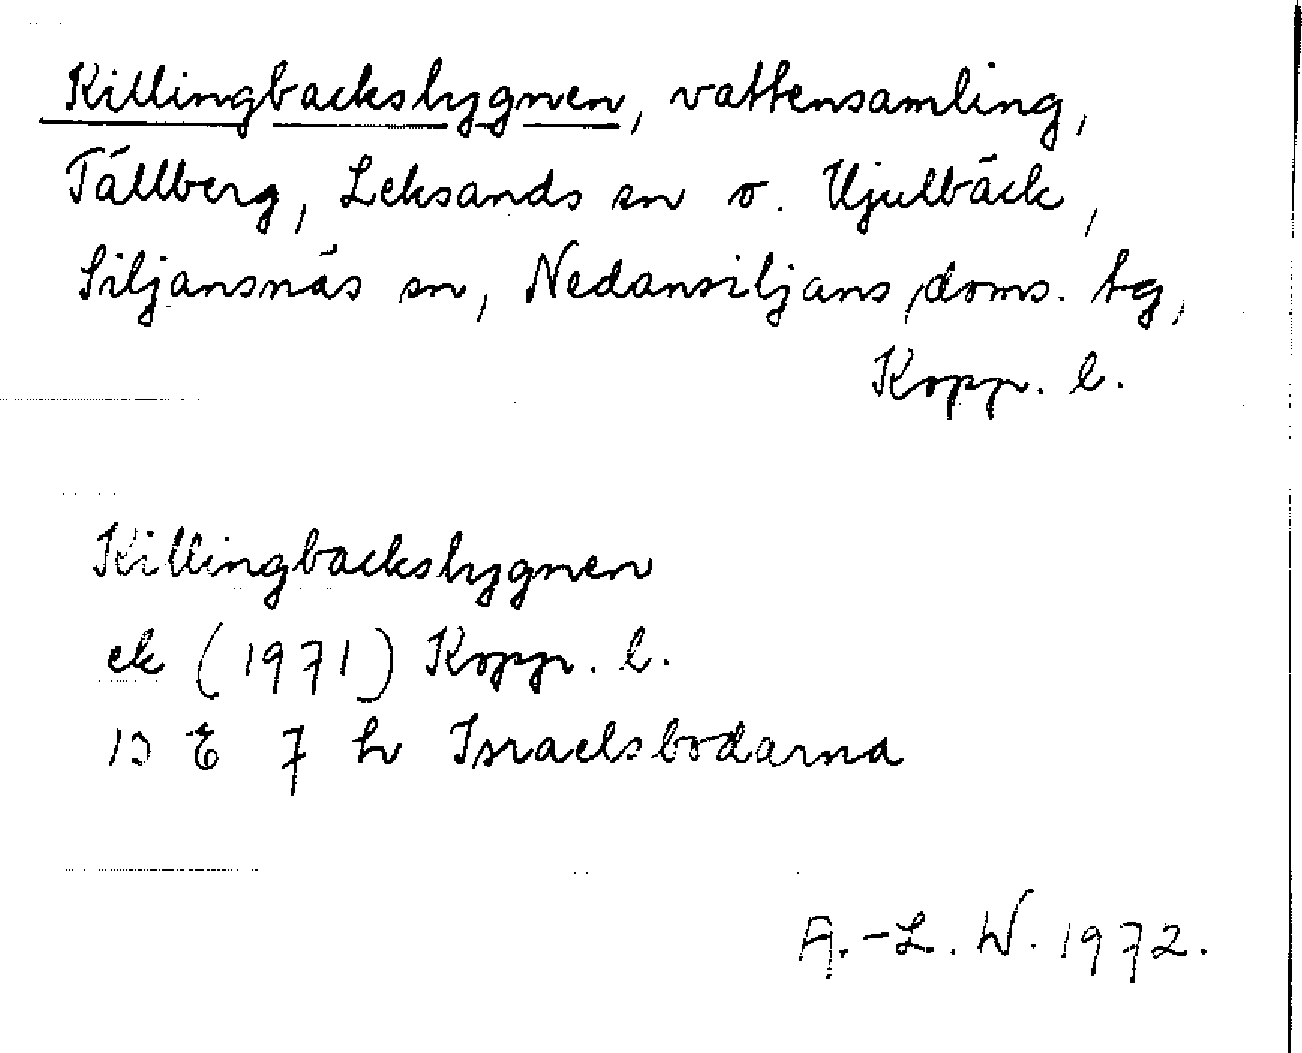 Killingbackshygnen, vattensamling,
Tällberg, Leksands sn o. Hjulbäck,
Siljansnäs sn, Nedansiljans doms. tg,
Kopp. l.
Killingbackshygnen
ek (1971) Kopp. l.
13 E 7 h Israelsbodarna
A.-L. W. 1972.